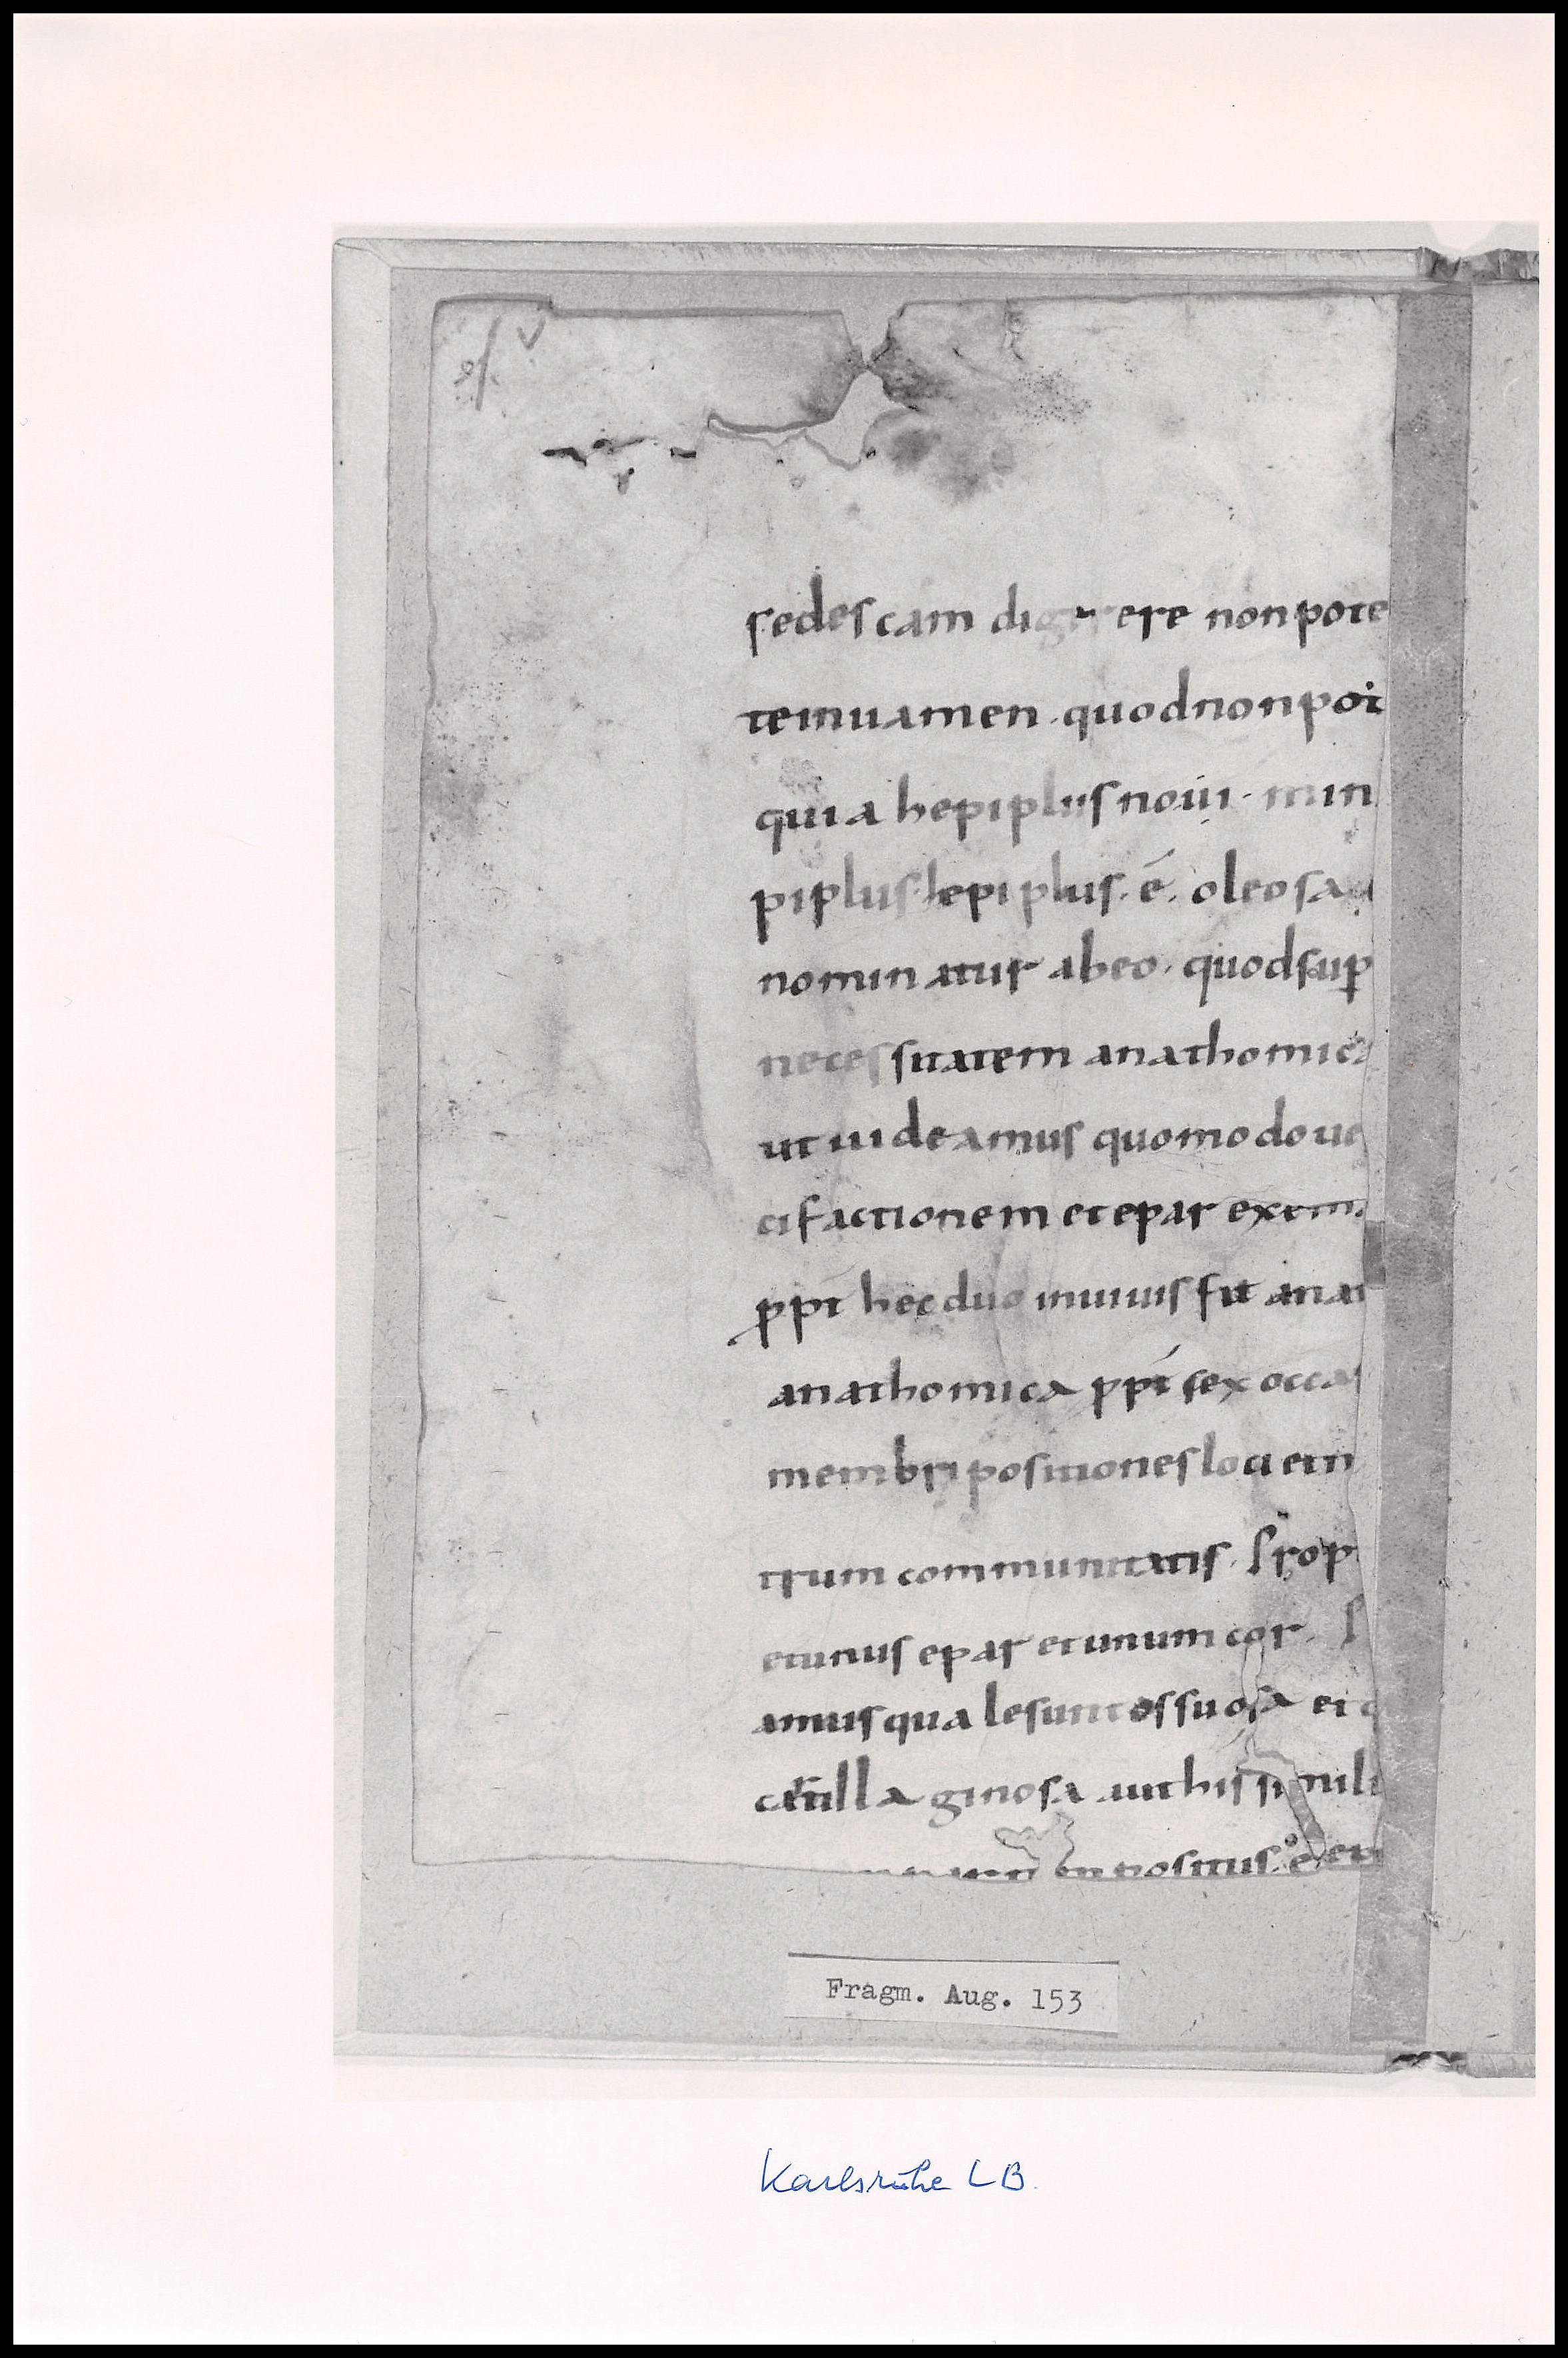 v
sedes cam digerere non pote
tenuamen · quod non pot
quia hepiplus noui · nun
piplus · hepiplus · é · oleosa
nominatur ab eo · quod sup
necessitatem anathomica
ut uideamus quomodo ue
cifactionem et epar
ppt hec duo in uiuis fit anat
anathomica ppt sex occas
membri positiones loci et n
trum communitatis · Prop
et unus epar et unum cor · P
amus qualesunt ossuosa et c
cartillaginosa aut his simili
positus · é et
Fragm. Aug. 153
Karlsruhe LB.